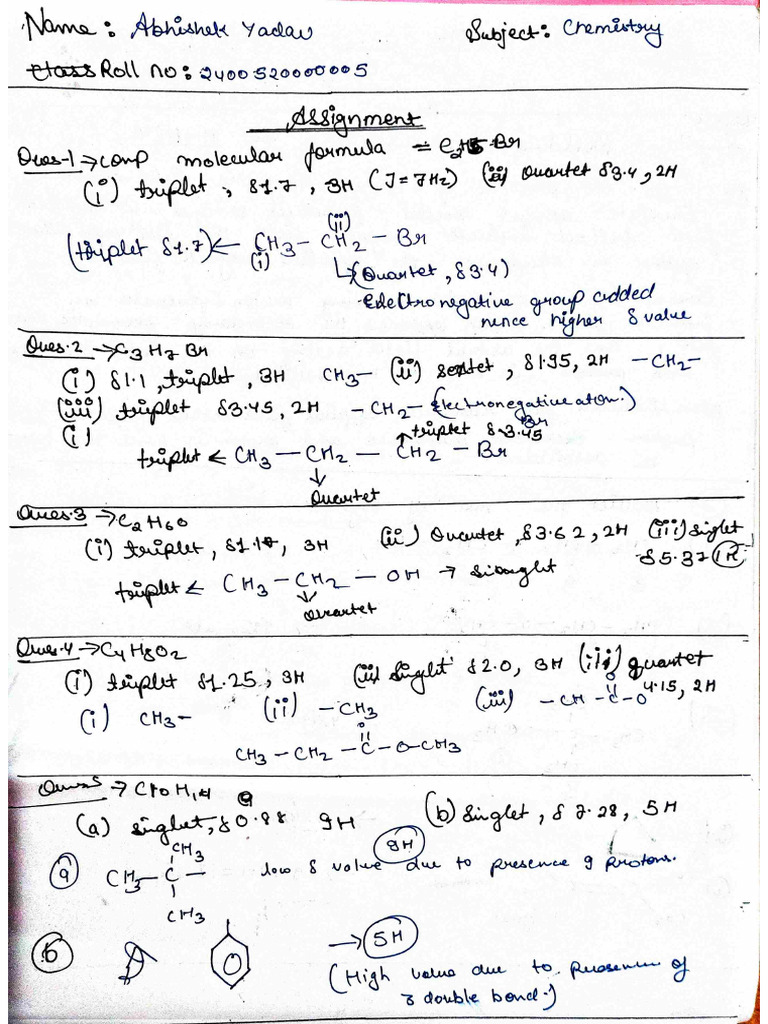 Name : Abhishek Yadav Subject : Chemistry
Class Roll no : 2400520000005
Assignment
Ques-1 → comp molecular formula = C2H5Br
(i) triplet, δ1.7, 3H (J=7Hz) (ii) Quartet δ3.4, 2H
(ii)
(triplet δ1.7) ← CH3 - CH2 - Br
(i)
↳ (Quartet, δ3.4)
Electronegative group added
hence higher δ value
Ques.2 → C3H7Br
(i) δ1.1, triplet, 3H CH3- (ii) sextet, δ1.95, 2H -CH2-
(iii) triplet δ3.45, 2H -CH2- (Electronegative atom.)
Br
(i) triplet δ3.45
triplet ← CH3 - CH2 - CH2 - Br
Quartet
Ques.3 → C2H6O
(i) triplet, δ1.17, 3H (ii) Quartet, δ3.62, 2H (iii) siglet
δ5.37 1H
triplet ← CH3 - CH2 - OH →
Quartet
Ques.4 → C4H8O2
(i) triplet δ1.25, 3H (ii) Singlet δ2.0, 3H (iii) quartet
4.15, 2H
(i) CH3- (ii) -CH3 (iii) -CH - C - O
O
O
CH3 - CH2 - C - O - CH3
Ques → C10H14
(a) singlet, δ0.88 9H (b) Singlet, δ7.28, 5H
9H
CH3
(a) CH3 - C - low δ value due to presence 9 protons.
CH3
(b) → 5H
(High value due to presence of
3 double bond.)